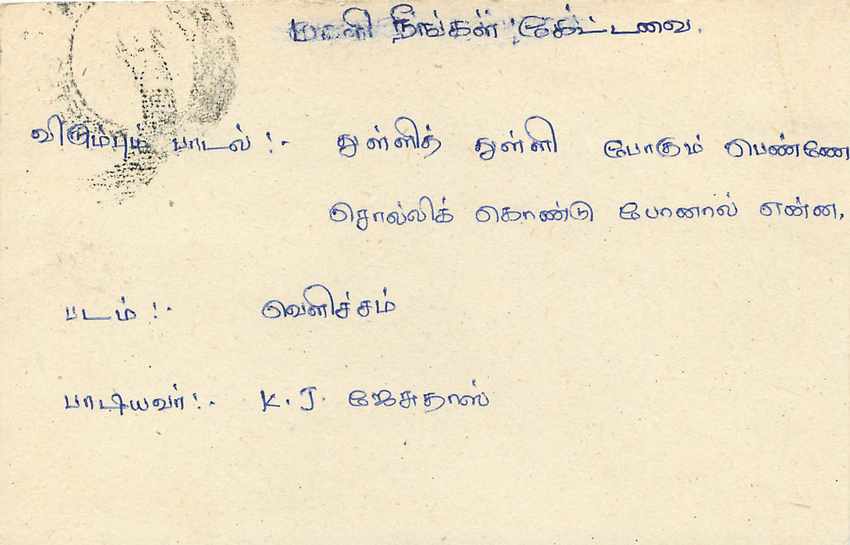 நீங்கள் கேட்டவை.
விரும்பும் பாடல் !- துள்ளித் துள்ளி போகும் பெண்ணே
சொல்லிக் கொண்டு போனால் என்ன,
படம் !- வெளிச்சம்
பாடியவர் !- K. J. ஜேசுதாஸ்